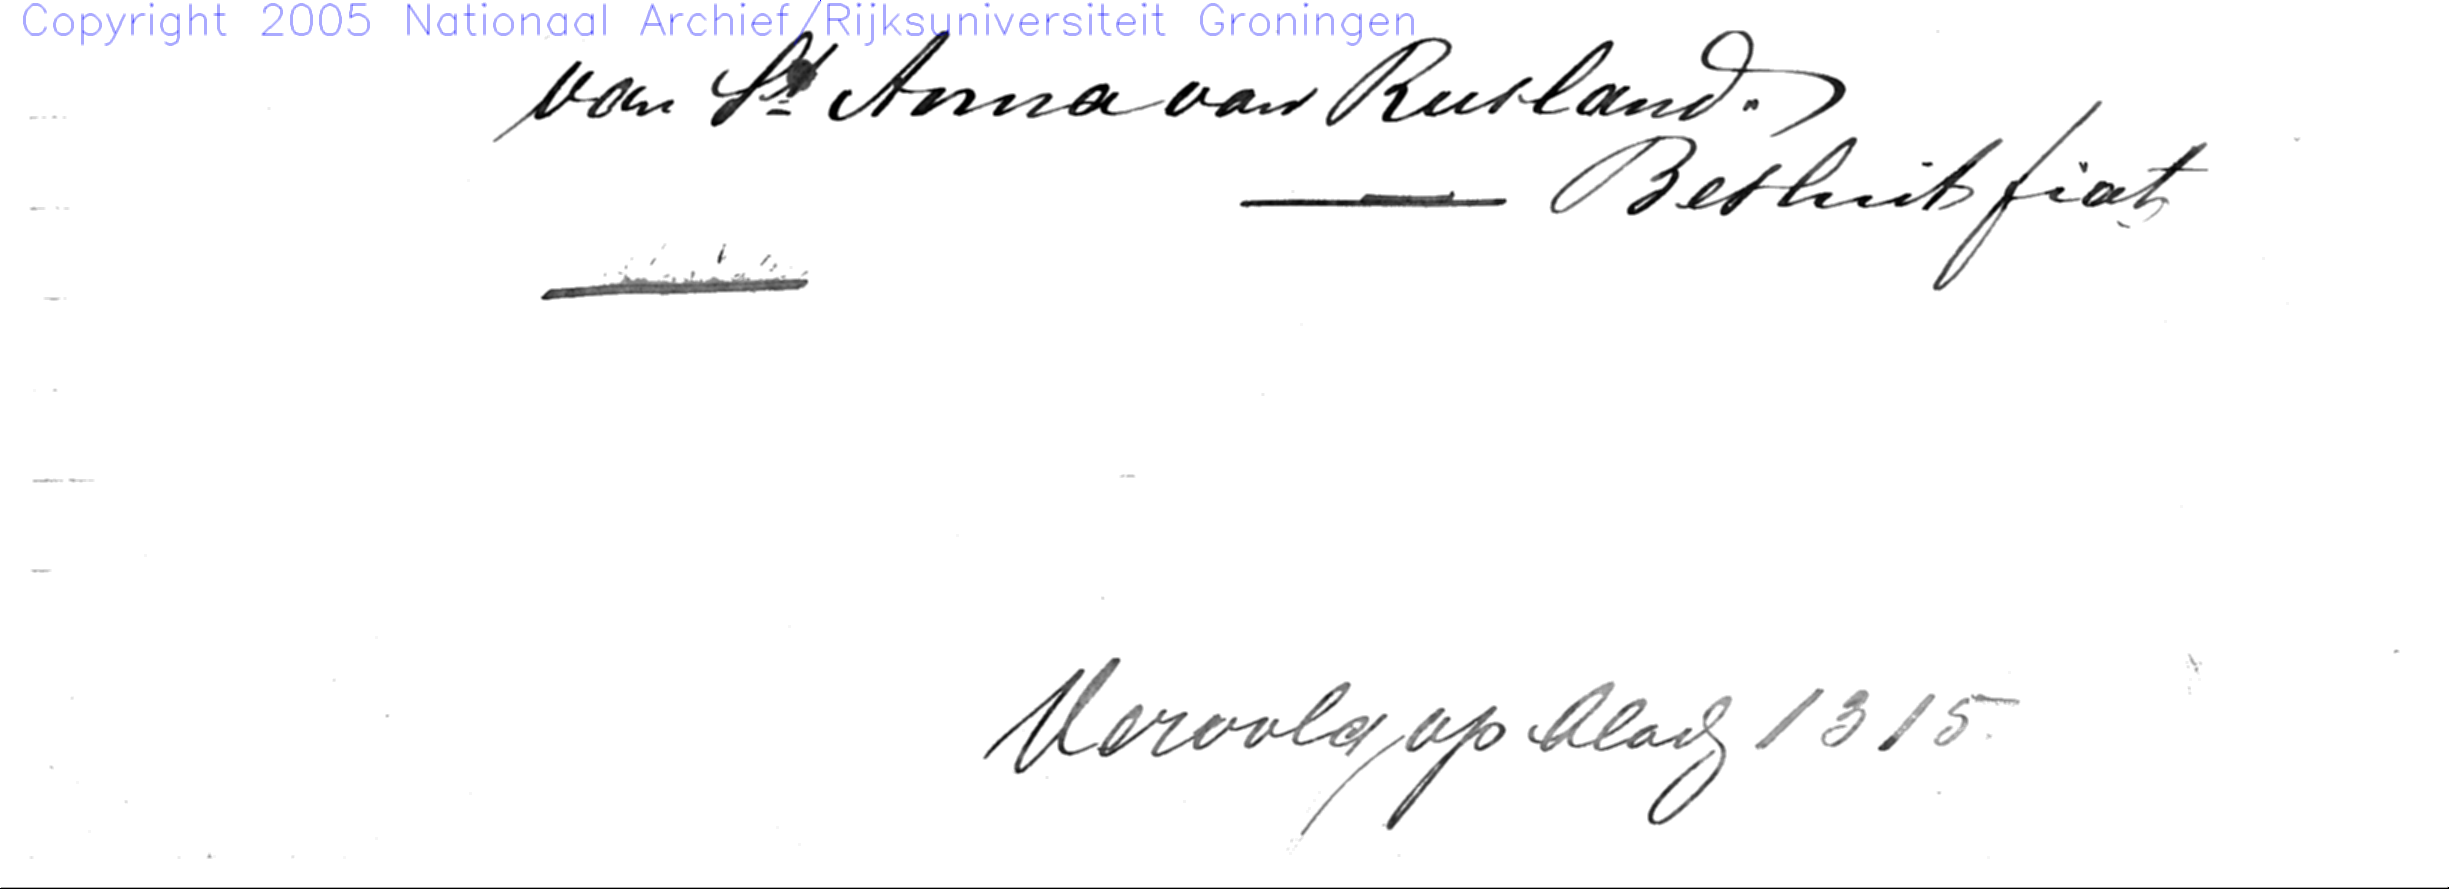 Copyright 2005 Nationaal Archief/Rijksuniversiteit Groningen
van St Anna van Rusland.
Besluit fiat
Vervolg op bladz 1315